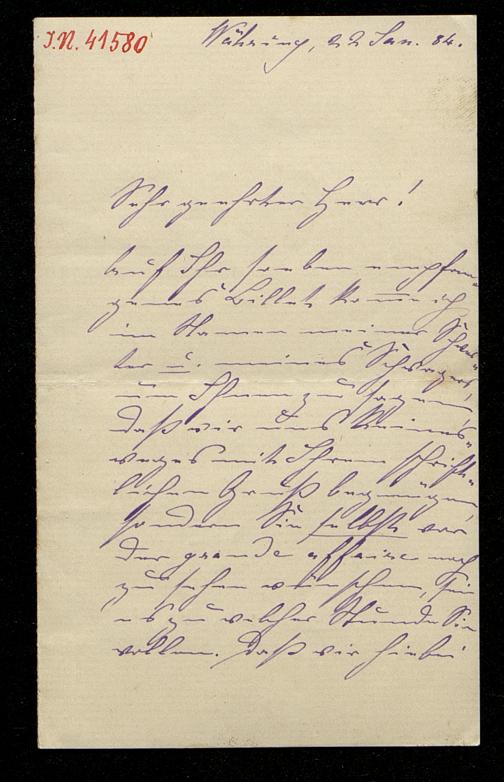 I.N. 41580
Währing, 22 Jan. 84.
Sehr geehrter Herr!
Auf Ihr soeben empfan-
genes Billet komme ich
im Namen meiner Schwes-
ter u. meines Schwagers,
um Ihnen zu sagen,
daß wir uns keines-
weges mit Ihrem schrift-
lichen Gruß begnügen,
sondern Sie selbst vor
der grande affaire noch
zu sehen wünschen, sei
es zu welcher Stunde Sie
wollen. Daß wir hiebei